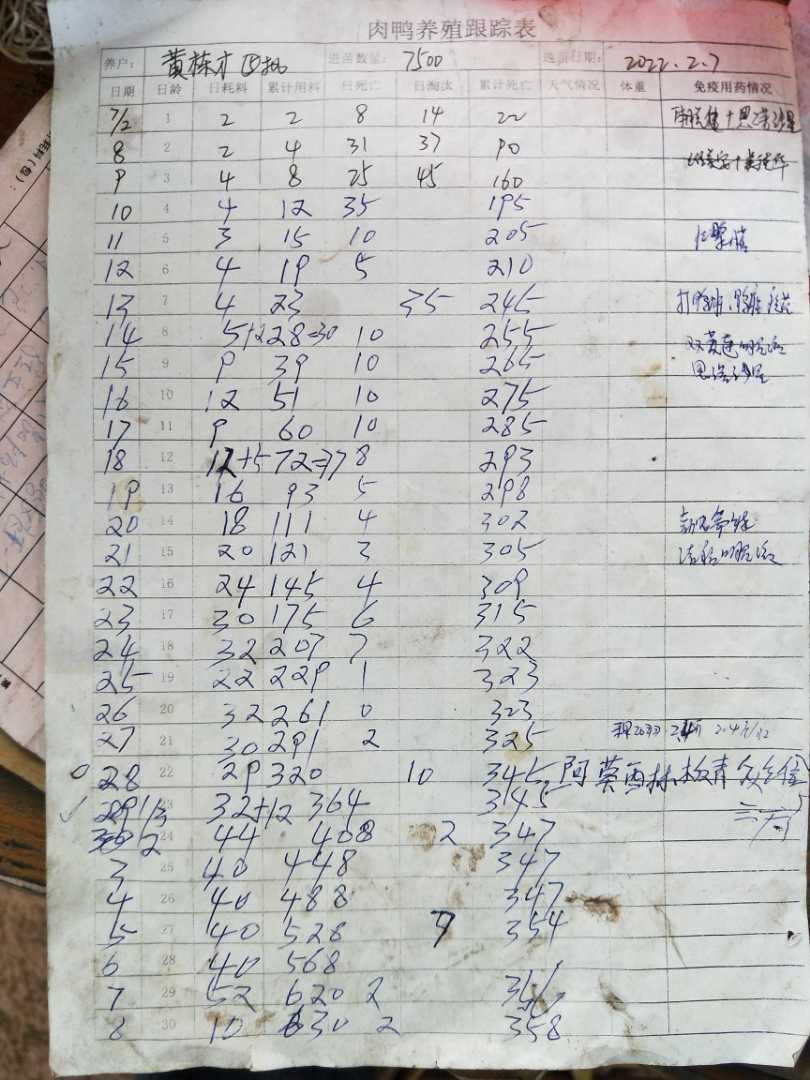 肉鸭养殖跟踪表
养户: 黄栋才 四批 进苗数量: 7500 进苗日期: 2022.2.7
日期 日龄 日耗料 累计用料 日死亡 日淘汰 累计死亡 天气情况 体重 免疫用药情况
7/2 1 2 2 8 14 22
8 2 2 4 31 37 90
9 3 4 8 25 45 160
10 4 4 12 35 195
11 5 3 15 10 205
12 6 4 19 5 210
13 7 4 23 35 245
14 8 5+2 28=30 10 255
15 9 9 39 10 265
16 10 12 51 10 275
17 11 9 60 10 285
18 12 12+5 72=77 8 293
19 13 16 93 5 298
20 14 18 111 4 302
21 15 20 121 3 305
22 16 24 145 4 309
23 17 30 175 6 315
24 18 32 207 7 322
25 19 22 229 1 323
26 20 32 261 0 323
27 21 30 291 2 325
28 22 29 320 10 345 阿莫西林
1/3 23 32+12 364 345
2 24 44 408 2 347
3 25 40 448 347
4 26 40 488 347
5 27 40 528 7 354
6 28 40 568
7 29 52 620 2
8 30 10 630 2 358